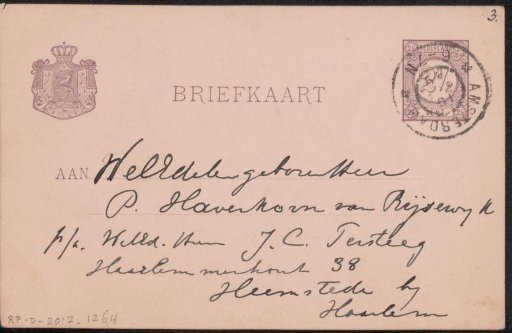 3.
AMSTERDAM
BRIEFKAART
AAN WelEdelgeboren Heer
P. Haverkorn van Rijsewijk
p/a. WelEd. Heer J. C. Tersteeg
Haarlemmerhout 38
Heemstede by
Haarlem
RP-D-2017-1264